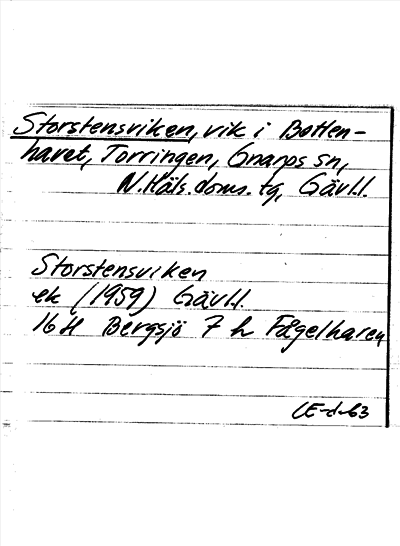 Storstensviken, vik i Botten-
havet, Torringen, Gnarps sn,
N. Häls. doms. tg, Gävl.l.
Storstensviken
ek (1959) Gävl.l.
16 H Bergsjö 7 h Fågelharen
CE-d-63